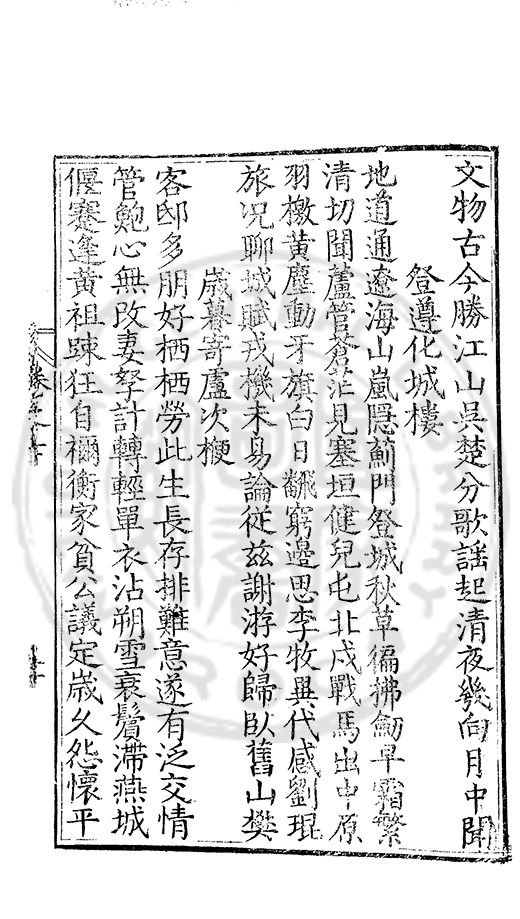 文物古今勝江山吳楚分歌謡起清夜幾向月中聞
登遵化城樓
地道通遼海山嵐隱薊門登城秋草徧拂劒早霜繁
清切聞蘆管蒼茫見塞垣健兒屯北戍戰馬出中原
羽檄黃塵動牙旗白日飜窮邊思李牧異代感劉琨
旅況聊城賦戎機未易論従兹謝游好歸臥舊山樊
歳暮寄盧次楩
客邸多朋好栖栖勞此生長存排難意遂有泛交情
管鮑心無改妻孥計轉輕單衣沾朔雪衰鬢滯燕城
偃蹇逢黃祖踈狂自禰衡家貧公議定歳久怨懷平